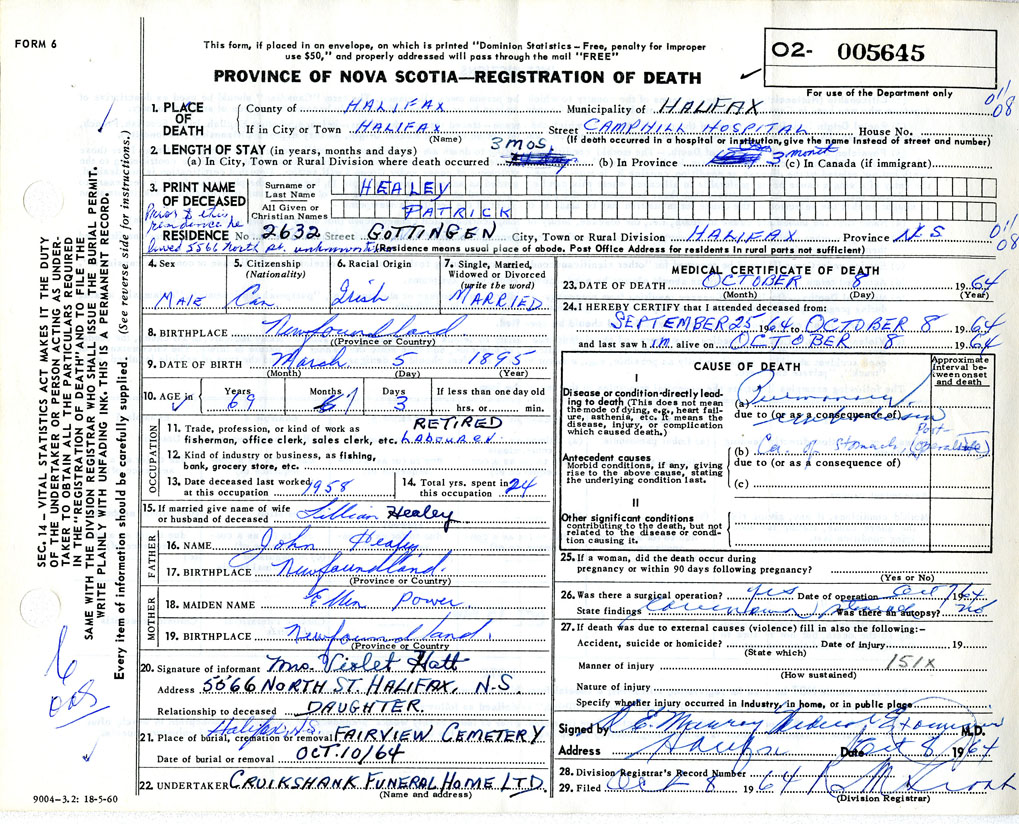 FORM 6
This form, if placed in an envelope, on which is printed "Dominion Statistics – Free, penalty for improper
use $50," and properly addressed will pass through the mail "FREE"
O2- 005645
PROVINCE OF NOVA SCOTIA—REGISTRATION OF DEATH
For use of the Department only
01/08
1. PLACE OF DEATH
County of HALIFAX Municipality of HALIFAX
If in City or Town HALIFAX Street CAMPHILL HOSPITAL House No.
(Name) (If death occurred in a hospital or institution, give the name instead of street and number)
2. LENGTH OF STAY (in years, months and days)
(a) In City, Town or Rural Division where death occurred 3 MOS. (b) In Province 3 month (c) In Canada (if immigrant)
3. PRINT NAME OF DECEASED
Surname or Last Name HEALEY
All Given or Christian Names PATRICK
Prior to this residence he lived 5566 North St. unknown
RESIDENCE No 2632 Street GOTTINGEN City, Town or Rural Division HALIFAX Province N.S
01/08
(Residence means usual place of abode. Post Office Address for residents in rural parts not sufficient)
4. Sex MALE
5. Citizenship (Nationality) Can
6. Racial Origin Irish
7. Single, Married, Widowed or Divorced (write the word) MARRIED
8. BIRTHPLACE Newfoundland
(Province or Country)
9. DATE OF BIRTH March 5 1895
(Month) (Day) (Year)
10. AGE in Years 69 Months 7 Days 3 If less than one day old hrs. or min.
OCCUPATION
11. Trade, profession, or kind of work as fisherman, office clerk, sales clerk, etc. RETIRED LABOURER
12. Kind of industry or business, as fishing, bank, grocery store, etc.
13. Date deceased last worked at this occupation 1958
14. Total yrs. spent in this occupation 24
15. If married give name of wife or husband of deceased Lillian Healey
FATHER
16. NAME John Healey
17. BIRTHPLACE Newfoundland.
(Province or Country)
MOTHER
18. MAIDEN NAME Ellen Power
19. BIRTHPLACE Newfoundland.
(Province or Country
20. Signature of informant Mrs. Violet Hatt
Address 5566 NORTH ST. HALIFAX, N.S.
Relationship to deceased DAUGHTER.
Halifax, N.S.
21. Place of burial, cremation or removal FAIRVIEW CEMETERY
Date of burial or removal OCT. 10/64
22. UNDERTAKER CRUIKSHANK FUNERAL HOME LTD.
(Name and address)
MEDICAL CERTIFICATE OF DEATH
23. DATE OF DEATH OCTOBER 8 1964
(Month) (Day) (Year)
24. I HEREBY CERTIFY that I attended deceased from:
SEPTEMBER 25 1964 to OCTOBER 8 1964
and last saw h IM. alive on OCTOBER 8 1964
CAUSE OF DEATH
Approximate interval between onset and death
I
Disease or condition directly leading to death (This does not mean the mode of dying, e.g., heart failure, asthenia, etc. It means the disease, injury, or complication which caused death.)
(a) Pulmonary
due to (or as a consequence of)
Antecedent causes
Morbid conditions, if any, giving rise to the above cause, stating the underlying condition last.
(b) Ca. of stomach, (Post operative)
due to (or as a consequence of)
(c)
II
Other significant conditions
contributing to the death, but not related to the disease or condition causing it.
25. If a woman, did the death occur during
pregnancy or within 90 days following pregnancy?
(Yes or No)
26. Was there a surgical operation? yes Date of operation Oct 1964
State findings Was there an autopsy? No
27. If death was due to external causes (violence) fill in also the following:–
Accident, suicide or homicide? Date of injury 19
(State which)
Manner of injury 151X
(How sustained)
Nature of injury
Specify whether injury occurred in industry, in home, or in public place
Signed by M.D.
Address Halifax Date Oct 8 1964
28. Division Registrar's Record Number
29. Filed Oct 8 1964
(Division Registrar)
SEC. 14 – VITAL STATISTICS ACT MAKES IT THE DUTY
OF THE UNDERTAKER OR PERSON ACTING AS UNDER-
TAKER TO OBTAIN ALL THE PARTICULARS REQUIRED
IN THE "REGISTRATION OF DEATH" AND TO FILE THE
SAME WITH THE DIVISION REGISTRAR WHO SHALL ISSUE THE BURIAL PERMIT.
WRITE PLAINLY WITH UNFADING INK. THIS IS A PERMANENT RECORD.
Every item of information should be carefully supplied. (See reverse side for instructions.)
9004—3.2: 18-5-60